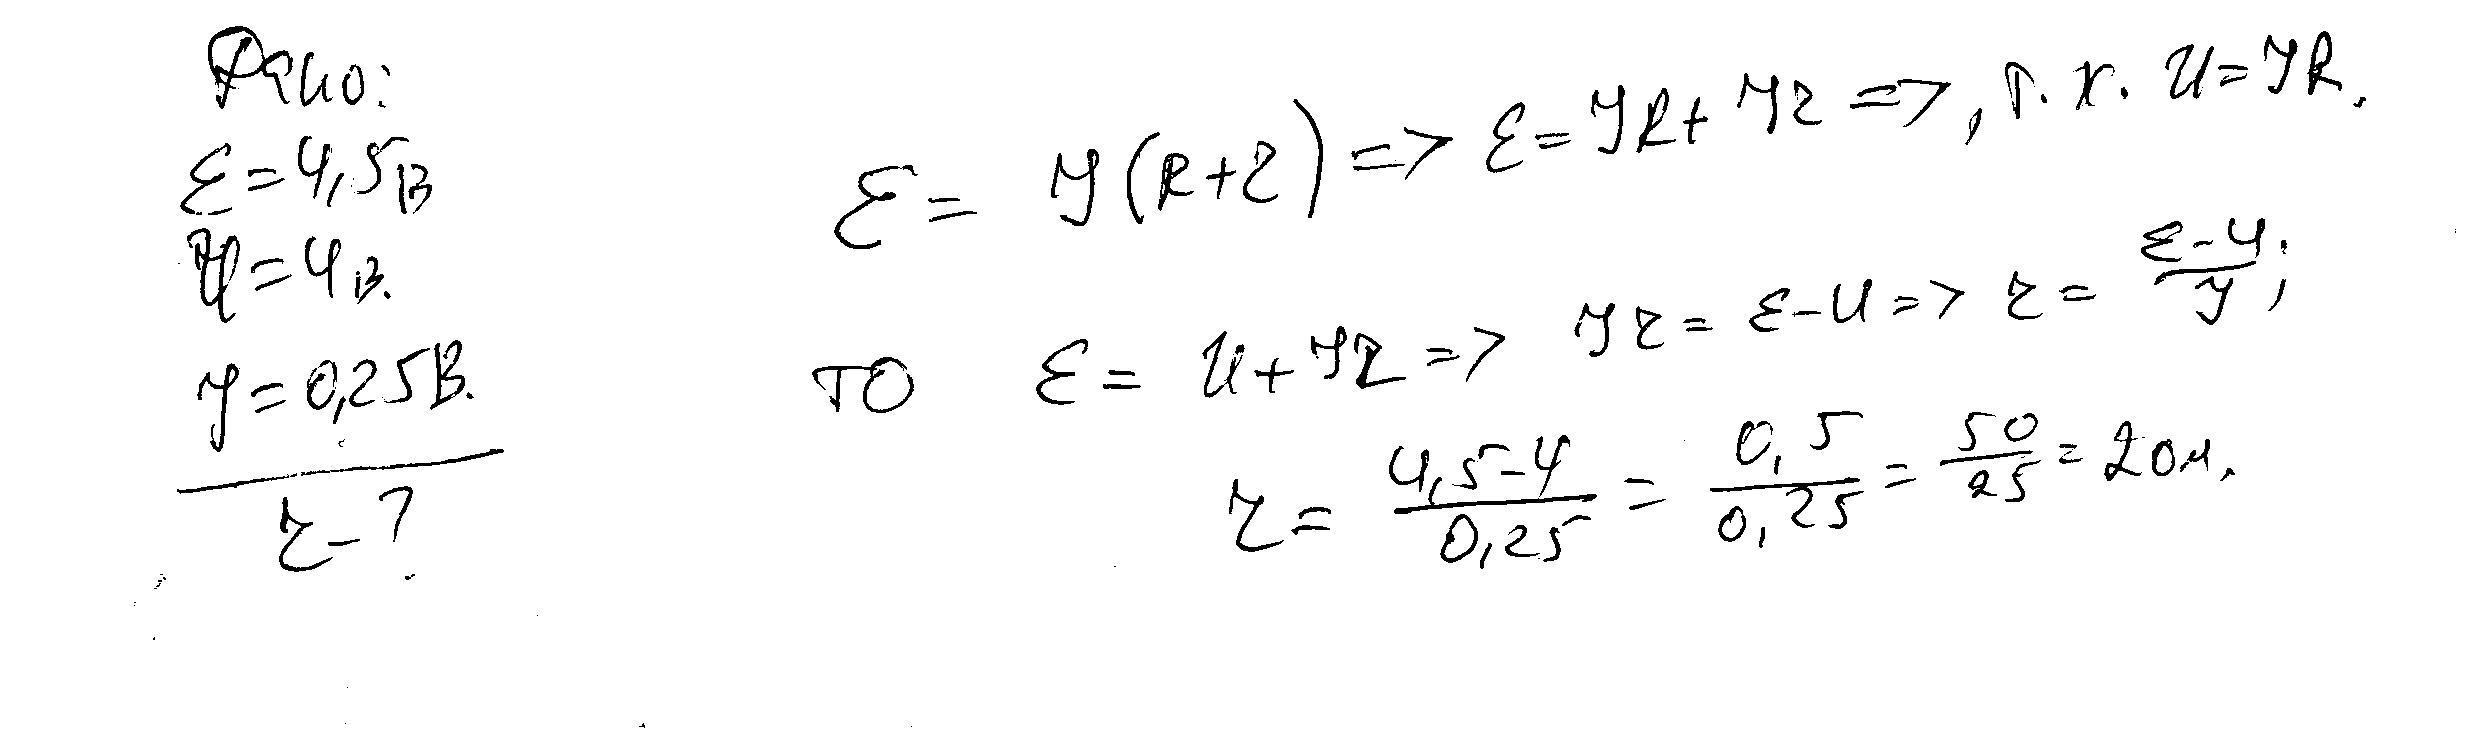 Дано:
ℰ=4,5В
U=4В.
J=0,25В.
r-?
ℰ= J(R+r)=> ℰ=JR+Jr=>, т.к. U=JR.
то ℰ= U+Jr=> Jr=ℰ-U=> r=(ℰ-U)/J;
r= (4,5-4)/0,25 = 0,5/0,25 = 50/25 = 2Ом.